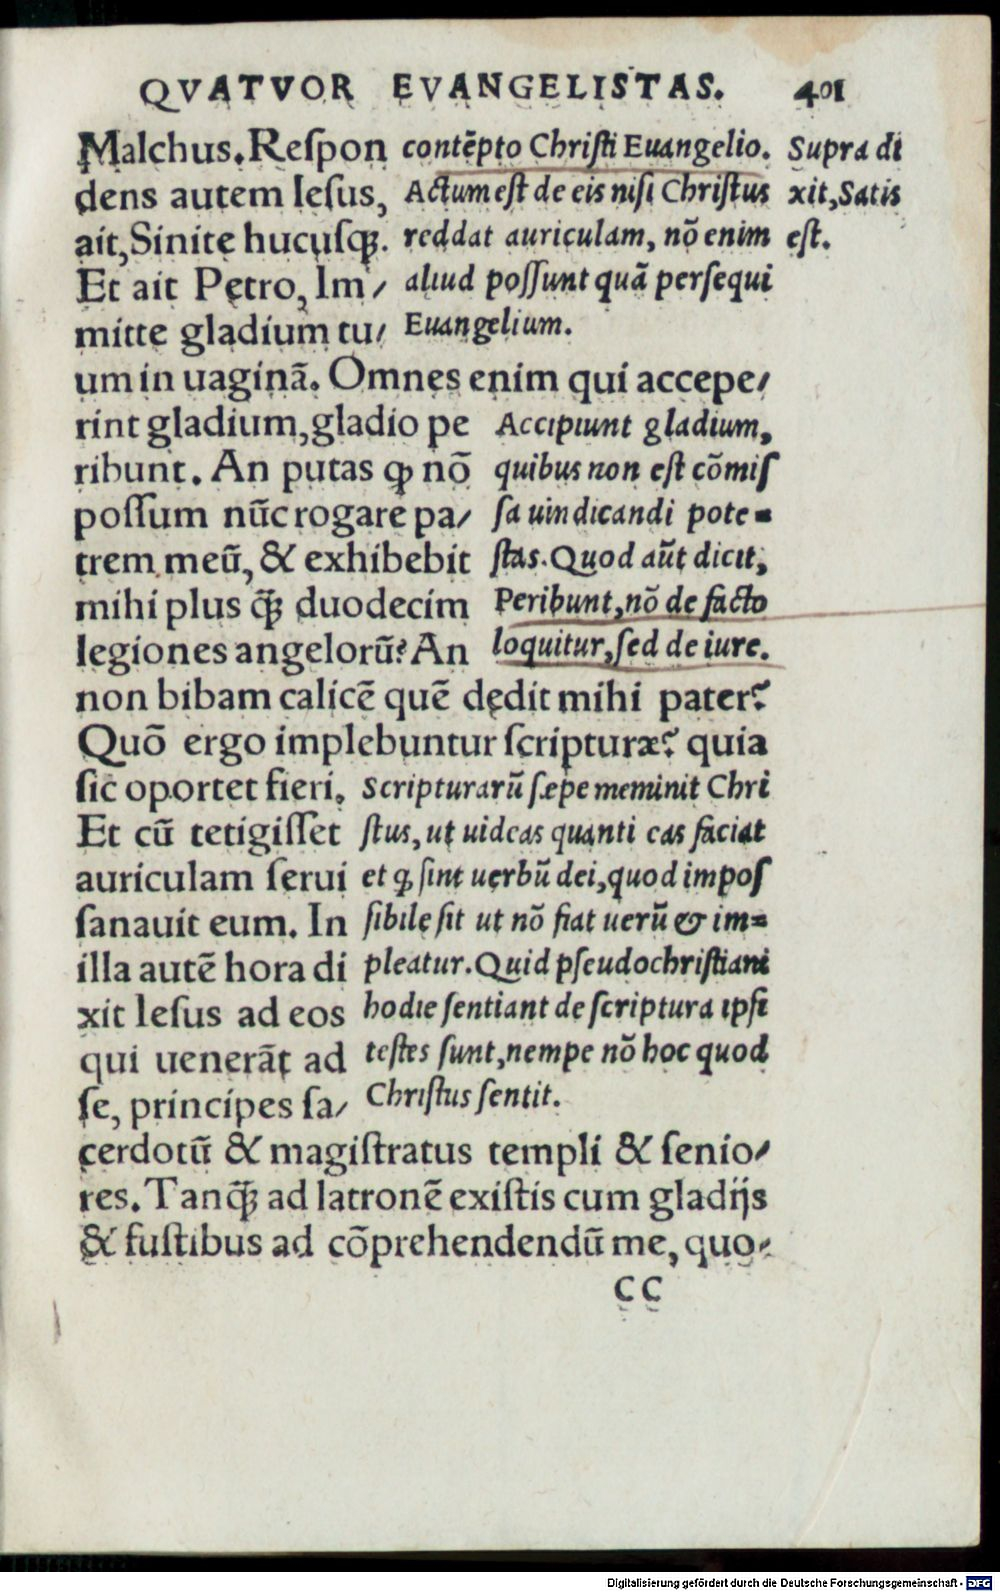 QVATVOR EVANGELISTAS. 401
Malchus. Reſpon
dens autem Ieſus,
ait, Sinite hucuſqꝫ.
Et ait Petro, Im/
mitte gladium tu/
contẽpto Chriſti Euangelio.
Actum est de eis niſi Chriſtus
reddat auriculam, nõ enim
aliud poſſunt quã perſequi
Euangelium.
Supra di
xit, Satis
eſt.
um in uaginã. Omnes enim qui accepe/
rint gladium, gladio pe
ribunt. An putas ꝙ nõ
poſſum nũc rogare pa/
trem meũ, & exhibebit
mihi plus q̃ꝫ duodecim
legiones angelorũ? An
Accipiunt gladium,
quibus non eſt cõmiſ
ſa uindicandi pote-
ſtas. Quod aũt dicit,
Peribunt, nõ de facto
loquitur, ſed de iure.
non bibam calicẽ quẽ dedit mihi pater?
Quõ ergo implebuntur ſcripturæ? quia
ſic oportet fieri.
Et cũ tetigiſſet
auriculam ſerui
ſanauit eum. In
illa autẽ hora di
xit Ieſus ad eos
qui uenerãt ad
ſe, principes ſa/
Scripturarũ ſæpe meminit Chri
ſtus, ut uideas quanti eas faciat
et ꝙ ſint uerbũ dei, quod impoſ
ſibile ſit ut nõ fiat uerũ & im-
pleatur. Quid pſeudochriſtiani
hodie ſentiant de ſcriptura ipſi
teſtes ſunt, nempe nõ hoc quod
Chriſtus ſentit.
cerdotũ & magiſtratus templi & ſenio/
res. Tanq̃ꝫ ad latronẽ exiſtis cum gladijs
& fuſtibus ad cõprehendendũ me, quo-
CC
Digitalisierung gefördert durch die Deutsche Forschungsgemeinschaft - DFG